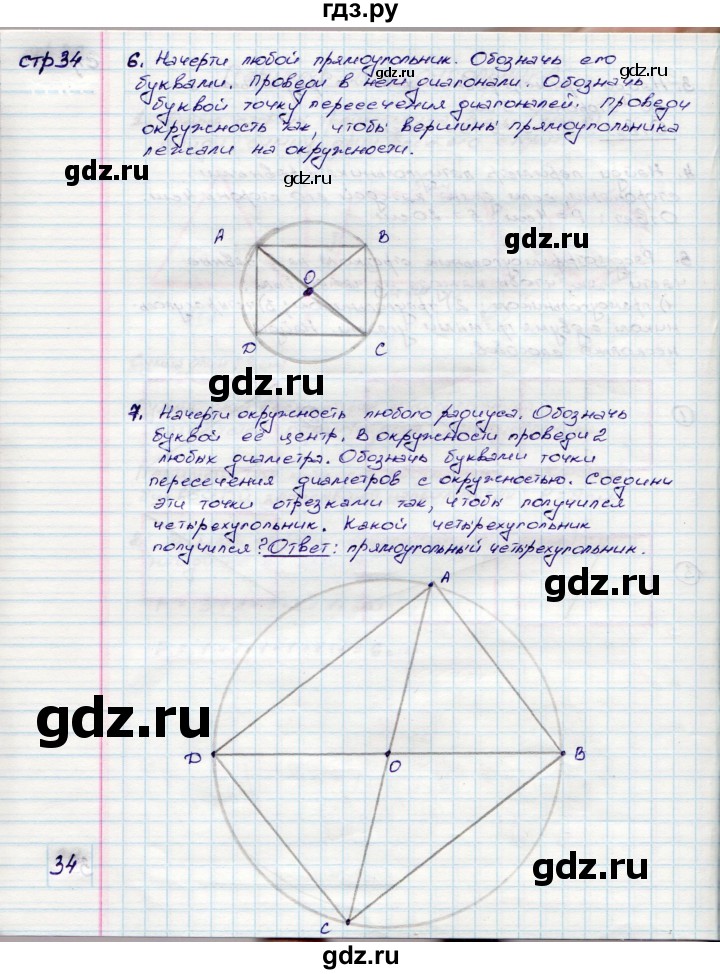 гдз.ру
стр 34
6. Начерти любой прямоугольник. Обозначь его
буквами. Проведи в нем диагонали. Обозначь
буквой точку пересечения диагоналей. Проведи
окружность так, чтобы вершины прямоугольника
лежали на окружности.
gdz.ru
gdz.ru
A B
gdz.ru
O
D C
gdz.ru
7. Начерти окружность любого радиуса. Обозначь
буквой её центр. В окружности проведи 2
любых диаметра. Обозначь буквами точки
gdz.ru
пересечения диаметров с окружностью. Соедини
эти точки отрезками так, чтобы получился
четырехугольник. Какой четырехугольник
получился? Ответ: прямоугольный четырехугольник.
A
gdz.ru
gdz.ru
D O B
34
gdz.ru
C
gdz.ru